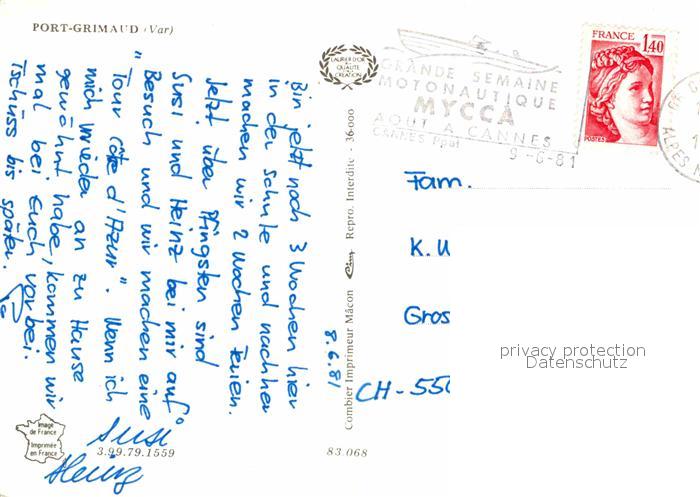 PORT-GRIMAUD (Var)
Bin jetzt noch 3 Wochen hier
in der Schule und nachher
machen wir 2 Wochen Ferien.
Jetzt über Pfingsten sind
Susi und Heinz bei mir auf
Besuch und wir machen eine
"Tour côte d'Azur". Wenn ich
mich wieder an zu Hause
gewöhnt habe, kommen wir
mal bei Euch vorbei.
Tschüss bis später.
Susi
Heinz
8.6.81
LAURIER D'OR
DE LA
QUALITÉ
CRÉATION
Combier Imprimeur Mâcon Cim Repro. Interdite - 36000
GRANDE SEMAINE
MOTONAUTIQUE
MYCCA
AOUT A CANNES
CANNES Ppal
9-6-81
FRANCE
1,40
POSTES
ALPES M
Fam.
K. U
Gros
CH-550
privacy protection
Datenschutz
Image
de France
Imprimée
en France
3.99.79.1559
83.068